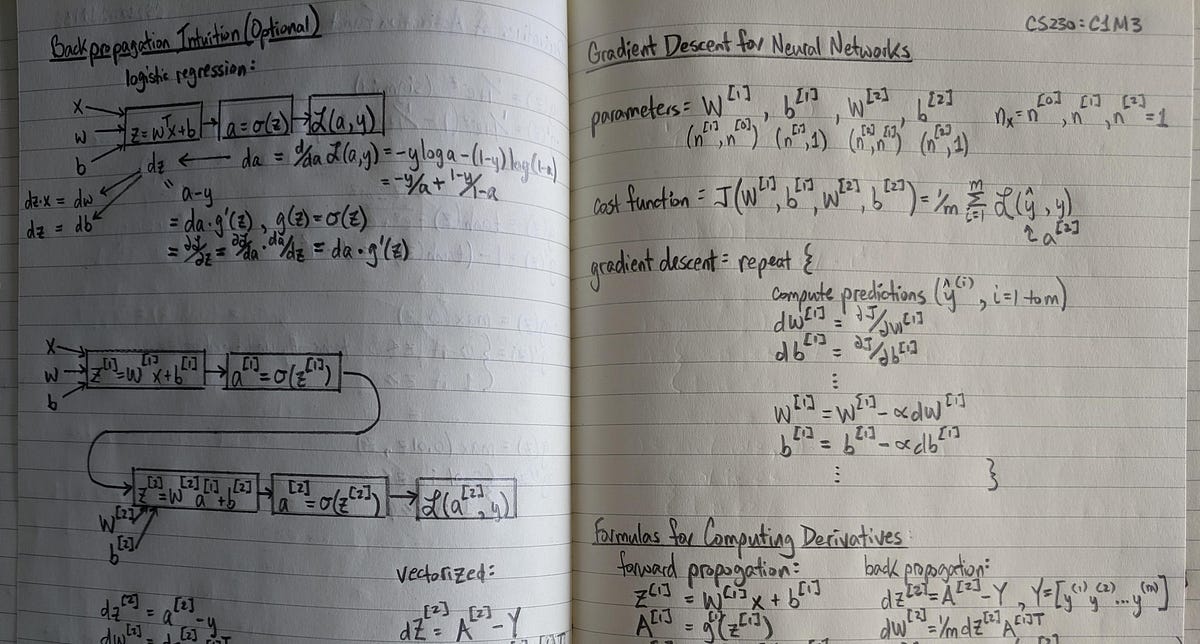 Backpropagation Intuition (Optional)
logistic regression:
x
w
b
z=wᵀx+b
a=σ(z)
ℒ(a,y)
dz ← da = d/da ℒ(a,y) = -yloga-(1-y)log(1-a)
= -y/a + 1-y/1-a
dz·x = dw
dz = db
" a-y
= da·g'(z), g(z)=σ(z)
= ∂ℒ/∂z = ∂ℒ/da · da/dz = da·g'(z)
x
w
b
z^[1]=W^[1]x+b^[1]
a^[1]=σ(z^[1])
z^[2]=W^[2]a^[1]+b^[2]
a^[2]=σ(z^[2])
ℒ(a^[2],y)
W^[2]
b^[2]
vectorized:
dz^[2] = a^[2]-y
dZ^[2] = A^[2]-Y
CS230: C1M3
Gradient Descent for Neural Networks
parameters = W^[1], b^[1], W^[2], b^[2] n_x=n^[0], n^[1], n^[2]=1
(n^[1],n^[0]) (n^[1],1) (n^[2],n^[1]) (n^[2],1)
cost function = J(W^[1],b^[1],W^[2],b^[2]) = 1/m Σ_{i=1}^{m} ℒ(ŷ,y)
↑ a^[2]
gradient descent = repeat {
compute predictions (ŷ^(i), i=1 to m)
dW^[1] = ∂J/∂W^[1]
db^[1] = ∂J/∂b^[1]
⋮
W^[1] = W^[1]-αdW^[1]
b^[1] = b^[1]-αdb^[1]
⋮ }
Formulas for Computing Derivatives:
forward propogation:
z^[1] = W^[1]x + b^[1]
A^[1] = g^[1](z^[1])
back propogation:
dz^[2] = A^[2]-Y, Y=[y^(1) y^(2) ... y^(m)]
dW^[2] = 1/m dz^[2]A^[1]T